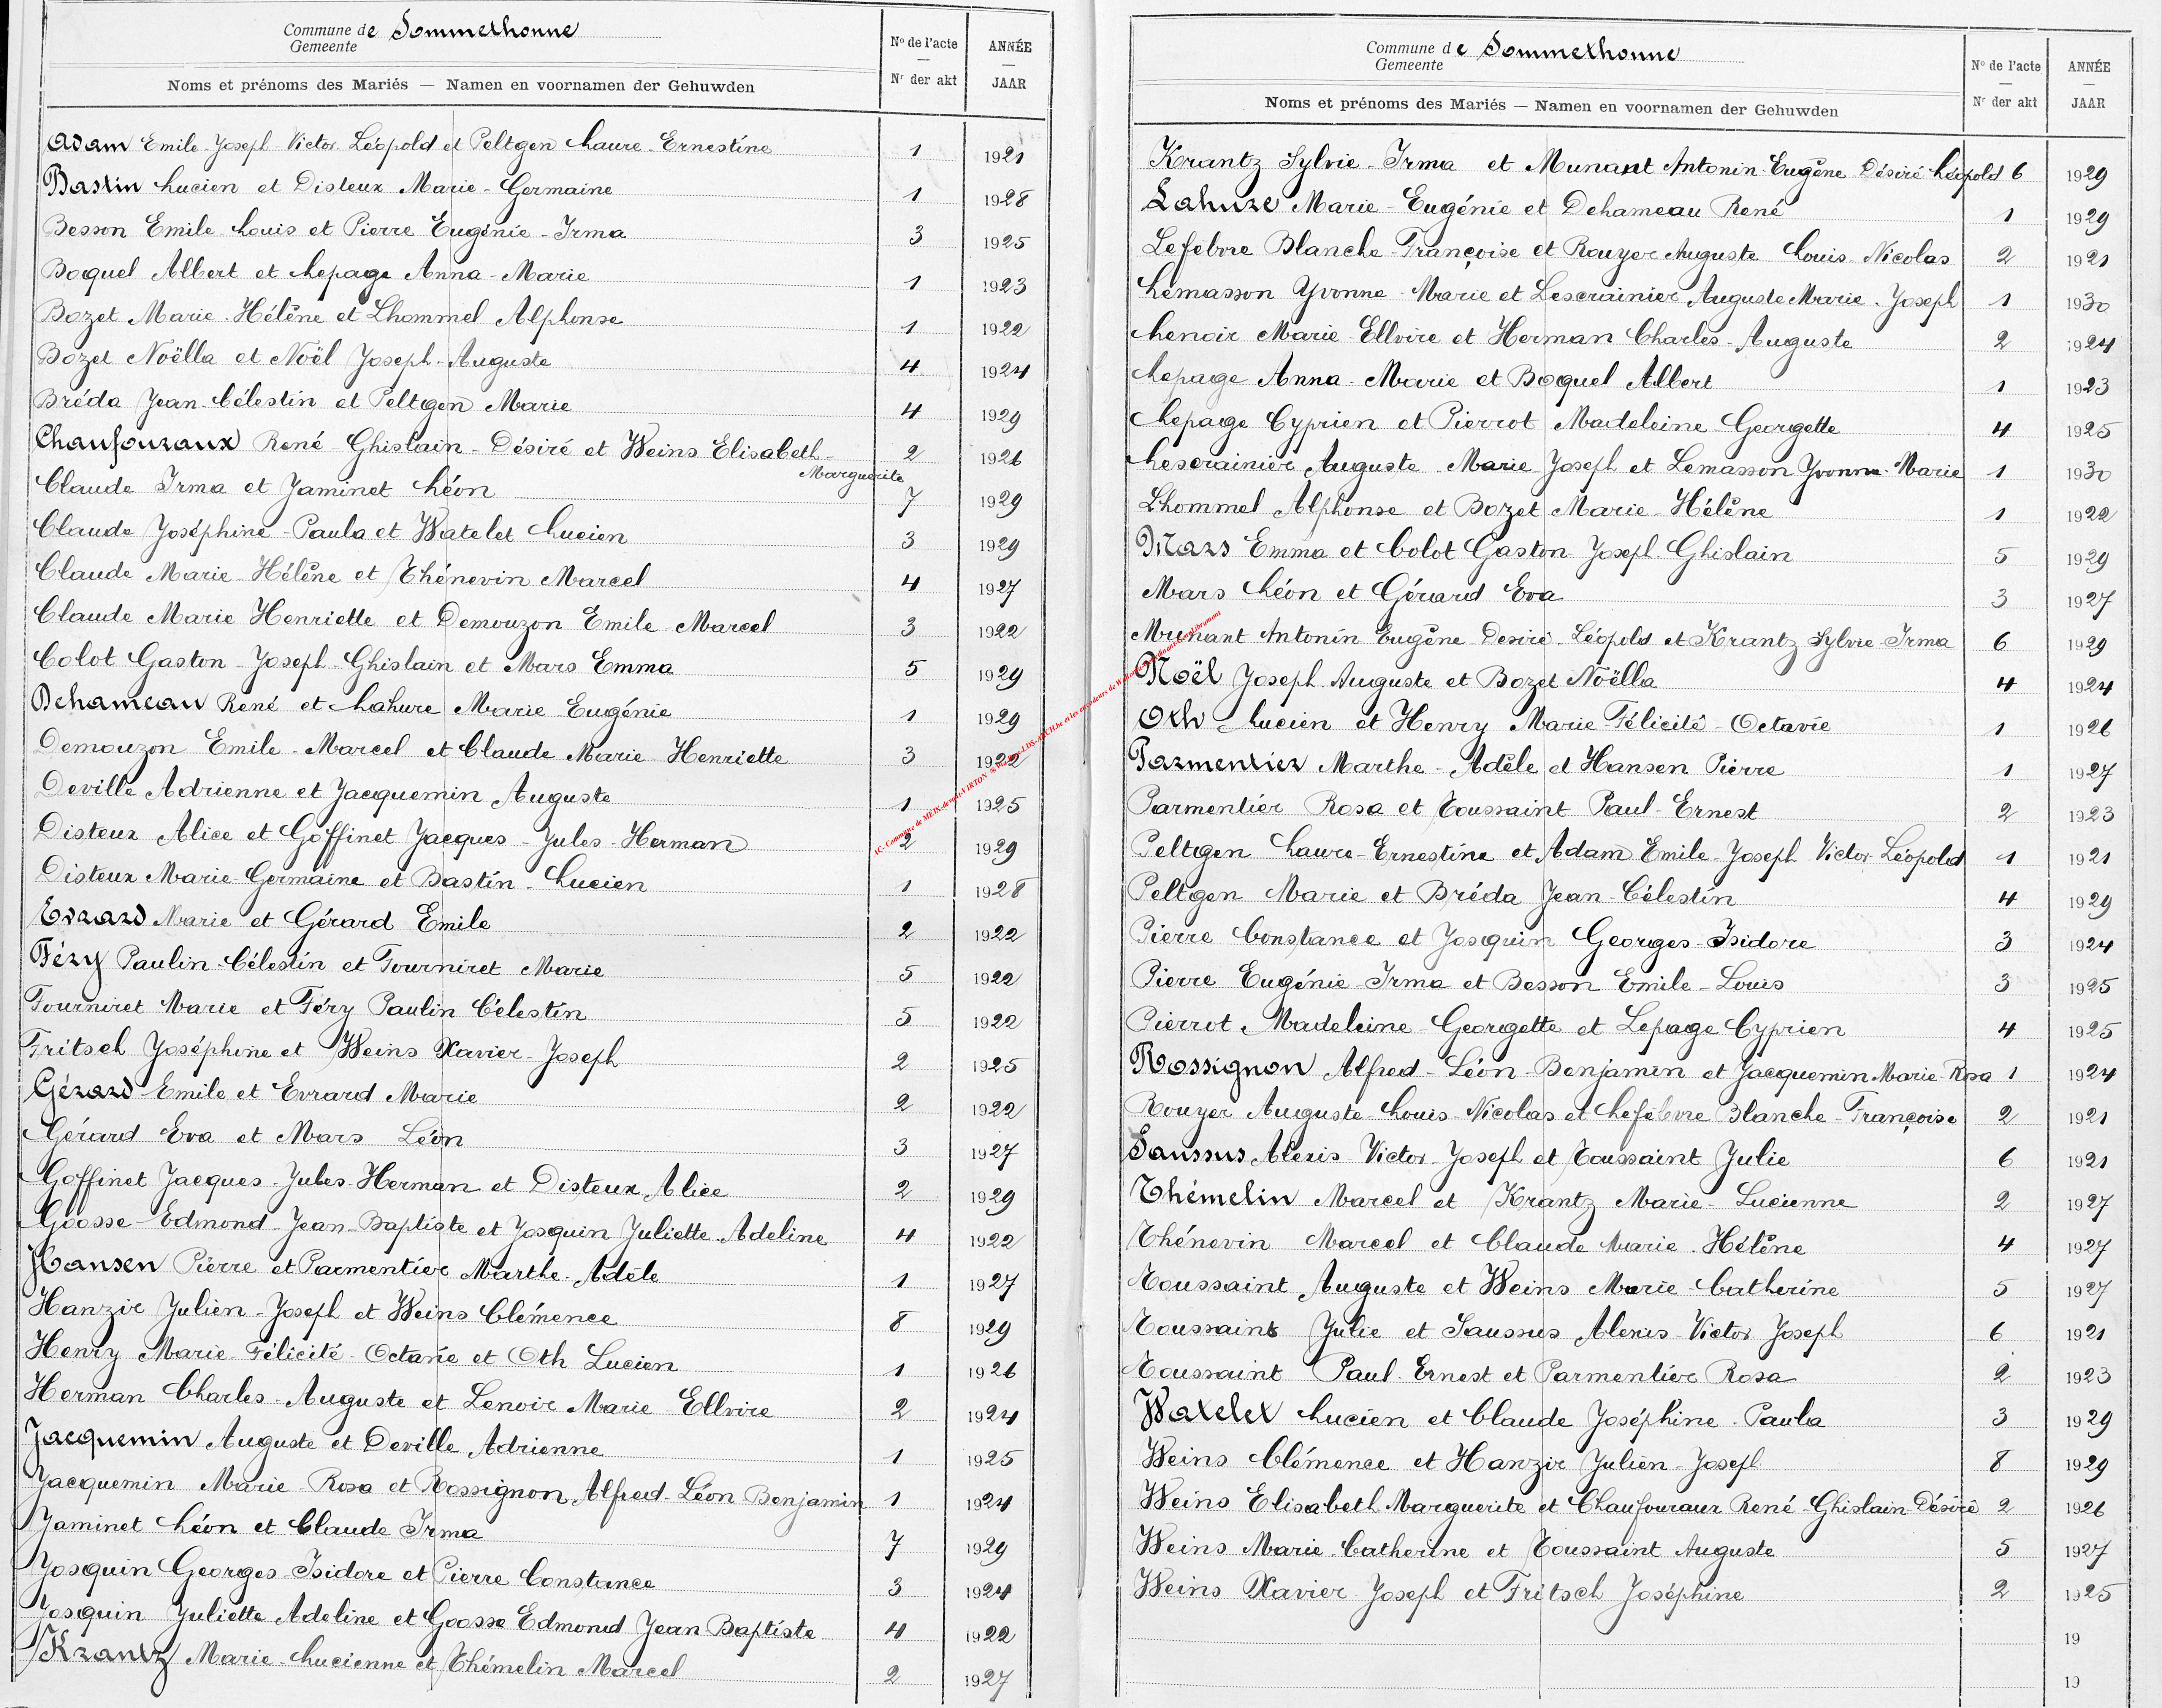 Commune de Sommethonne
Gemeente
Noms et prénoms des Mariés — Namen en voornamen der Gehuwden
N° de l'acte — Nr der akt
ANNÉE — JAAR
Adam Emile Joseph Victor Léopold et Peltgen Laure-Ernestine 1 1921
Bastin Lucien et Disteux Marie-Germaine 1 1928
Besson Emile Louis et Pierre Eugénie-Irma 3 1925
Boquel Albert et Lepage Anna-Marie 1 1923
Bozet Marie-Hélène et Lhommel Alphonse 1 1922
Bozet Noëlla et Noël Joseph-Auguste 4 1924
Bréda Jean-Célestin et Peltgen Marie 4 1929
Chaufouraux René-Ghislain-Désiré et Weins Elisabeth- 2 1926
Marguerite
Claude Irma et Jaminet Léon 7 1929
Claude Joséphine-Paula et Watelet Lucien 3 1929
Claude Marie-Hélène et Thénevin Marcel 4 1927
Claude Marie Henriette et Demouzon Emile-Marcel 3 1922
Colot Gaston-Joseph-Ghislain et Mars Emma 5 1929
Dehameau René et Lahure Marie-Eugénie 1 1929
Demouzon Emile-Marcel et Claude Marie Henriette 3 1922
Deville Adrienne et Jacquemin Auguste 1 1925
Disteux Alice et Goffinet Jacques-Jules-Herman 2 1929
Disteux Marie-Germaine et Bastin-Lucien 1 1928
Evrard Marie et Gérard Emile 2 1922
Féry Paulin-Célestin et Fourniret Marie 5 1922
Fourniret Marie et Féry Paulin Célestin 5 1922
Fritsch Joséphine et Weins Xavier-Joseph 2 1925
Gérard Emile et Evrard Marie 2 1922
Gérard Eva et Mars Léon 3 1927
Goffinet Jacques-Jules-Herman et Disteux Alice 2 1929
Goosse-Edmond-Jean-Baptiste et Josquin Juliette-Adeline 4 1922
Hansen Pierre et Parmentier Marthe-Adèle 1 1927
Hanzir Julien-Joseph et Weins Clémence 8 1929
Henry Marie-Félicité-Octavie et Oth Lucien 1 1926
Herman Charles-Auguste et Lenoir Marie Ellvire 2 1924
Jacquemin Auguste et Deville Adrienne 1 1925
Jacquemin Marie-Rosa et Rossignon Alfred-Léon Benjamin 1 1924
Jaminet Léon et Claude Irma 7 1929
Josquin Georges-Isidore et Pierre Constance 3 1924
Josquin Juliette Adeline et Goosse Edmond Jean Baptiste 4 1922
Krantz Marie-Lucienne et Thémelin Marcel 2 1927
Commune de Sommethonne
Gemeente
Noms et prénoms des Mariés — Namen en voornamen der Gehuwden
N° de l'acte — Nr der akt
ANNÉE — JAAR
Krantz Sylvie-Irma et Munant Antonin Eugène Désiré Léopold 6 1929
Lahure Marie-Eugénie et Dehameau René 1 1929
Lefebvre Blanche-Françoise et Rouyer Auguste Louis-Nicolas 2 1921
Lemasson Yvonne-Marie et Lescrainier Auguste Marie-Joseph 1 1930
Lenoir Marie-Ellvire et Herman Charles-Auguste 2 1924
Lepage Anna-Marie et Boquel Albert 1 1923
Lepage Cyprien et Pierrot Madeleine Georgette 4 1925
Lescrainier Auguste Marie Joseph et Lemasson Yvonne-Marie 1 1930
Lhommel Alphonse et Bozet Marie-Hélène 1 1922
Mars Emma et Colot Gaston Joseph-Ghislain 5 1929
Mars Léon et Gérard Eva 3 1927
Munant Antonin Eugène Desiré-Léopold et Krantz Sylvie-Irma 6 1929
Noël Joseph-Auguste et Bozet Noëlla 4 1924
Oth Lucien et Henry Marie-Félicité-Octavie 1 1926
Parmentier Marthe-Adèle et Hansen Pierre 1 1927
Parmentier Rosa et Toussaint Paul-Ernest 2 1923
Peltgen Laure-Ernestine et Adam Emile-Joseph Victor Léopold 1 1921
Peltgen Marie et Bréda Jean-Célestin 4 1929
Pierre Constance et Josquin Georges-Isidore 3 1924
Pierre Eugénie-Irma et Besson Emile-Louis 3 1925
Pierrot Madeleine-Georgette et Lepage Cyprien 4 1925
Rossignon Alfred-Léon-Benjamin et Jacquemin Marie-Rosa 1 1924
Rouyer Auguste-Louis-Nicolas et Lefebvre Blanche-Françoise 2 1921
Saussus Alexis Victor-Joseph et Toussaint Julie 6 1921
Thémelin Marcel et Krantz Marie-Lucienne 2 1927
Thénevin Marcel et Claude Marie-Hélène 4 1927
Toussaint Auguste et Weins Marie-Catherine 5 1927
Toussaint Julie et Saussus Alexis-Victor Joseph 6 1921
Toussaint Paul-Ernest et Parmentier Rosa 2 1923
Watelet Lucien et Claude Joséphine-Paula 3 1929
Weins Clémence et Hanzir Julien-Joseph 8 1929
Weins Elisabeth Marguerite et Chaufouraux René-Ghislain-Désiré 2 1926
Weins Marie-Catherine et Toussaint Auguste 5 1927
Weins Xavier-Joseph et Fritsch Joséphine 2 1925
19
19